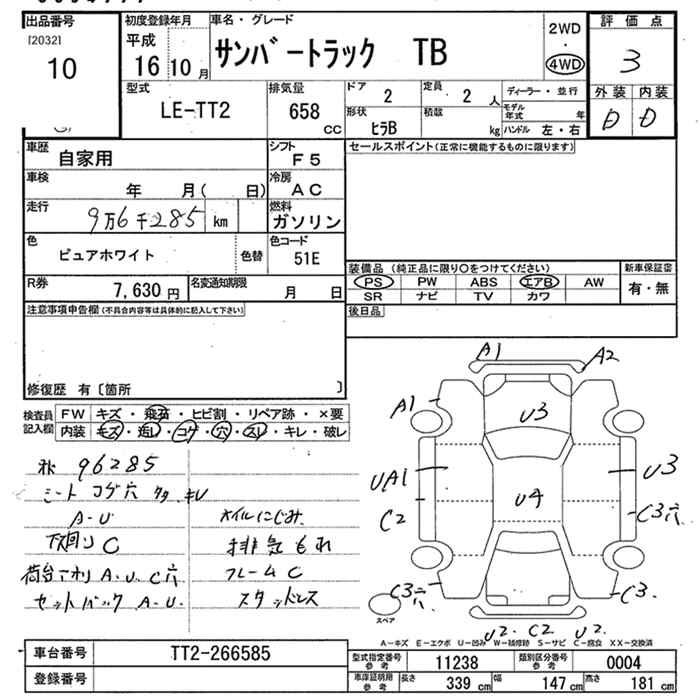 出品番号
[2032]
10
初度登録年月
平成
16 10 月
車名・グレード
サンバートラック TB
2WD
・
4WD
評価点
3
外装 内装
D D
型式
LE-TT2
排気量
658
CC
ドア
2
形状
ヒラB
定員
2 人
積載
kg
ディーラー・並行
モデル年式 年
ハンドル 左・右
車歴
自家用
シフト
F5
車検
年 月( 日)
冷房
AC
走行
9万6千285 km
燃料
ガソリン
色
ピュアホワイト
色替
色コード
51E
R券
7,630 円
名変通知期限
月 日
セールスポイント(正常に機能するものに限ります)
装備品 (純正品に限り○をつけてください)
PS PW ABS エアB AW
SR ナビ TV カワ
新車保証書
有・無
後日品
注意事項申告欄(不具合内容等は具体的に記入して下さい)
修復歴 有〔箇所 〕
検査員
記入欄
FW キズ・飛石・ヒビ割・リペア跡・×要
内装 キズ・汚レ・コゲ・穴・スレ・キレ・破レ
96285
シート コゲ穴
A-U
オイルにじみ
下回り C
排気もれ
荷台アオリ A.U. C穴
フレーム C
セットバック A-U.
スタッドレス
A1
A2
A1
U3
UA1
U3
U4
C2
C3穴
C3穴
C3
スペア
U2. C2 U2
A-キズ E-エクボ U-凹み W-補修跡 S-サビ C-腐食 XX-交換済
車台番号
TT2-266585
登録番号
型式指定番号
参考
11238
類別区分番号
参考
0004
車庫証明用
参考
長さ 339 cm
幅 147 cm
高さ 181 cm